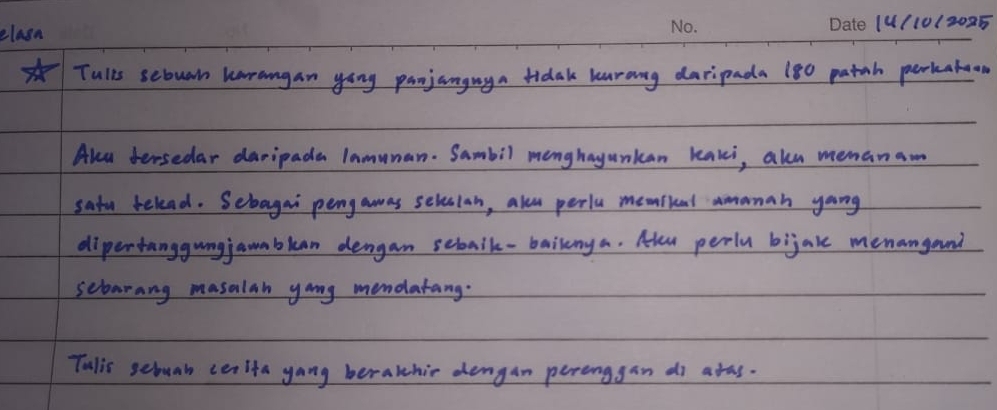 elasa
No. Date 14/10/2025
Tulis sebuah karangan yang panjangnya tidak kurang daripada 180 patah perkataan
Aku tersedar daripada lamunan. Sambil menghayunkan kaki, aku menanam
satu tekad. Sebagai pengawas sekolah, aku perlu memikul amanah yang
dipertanggungjawabkan dengan sebaik-baiknya. Aku perlu bijak menangani
sebarang masalah yang mendatang.
Tulis sebuah cerita yang berakhir dengan perenggan di atas.